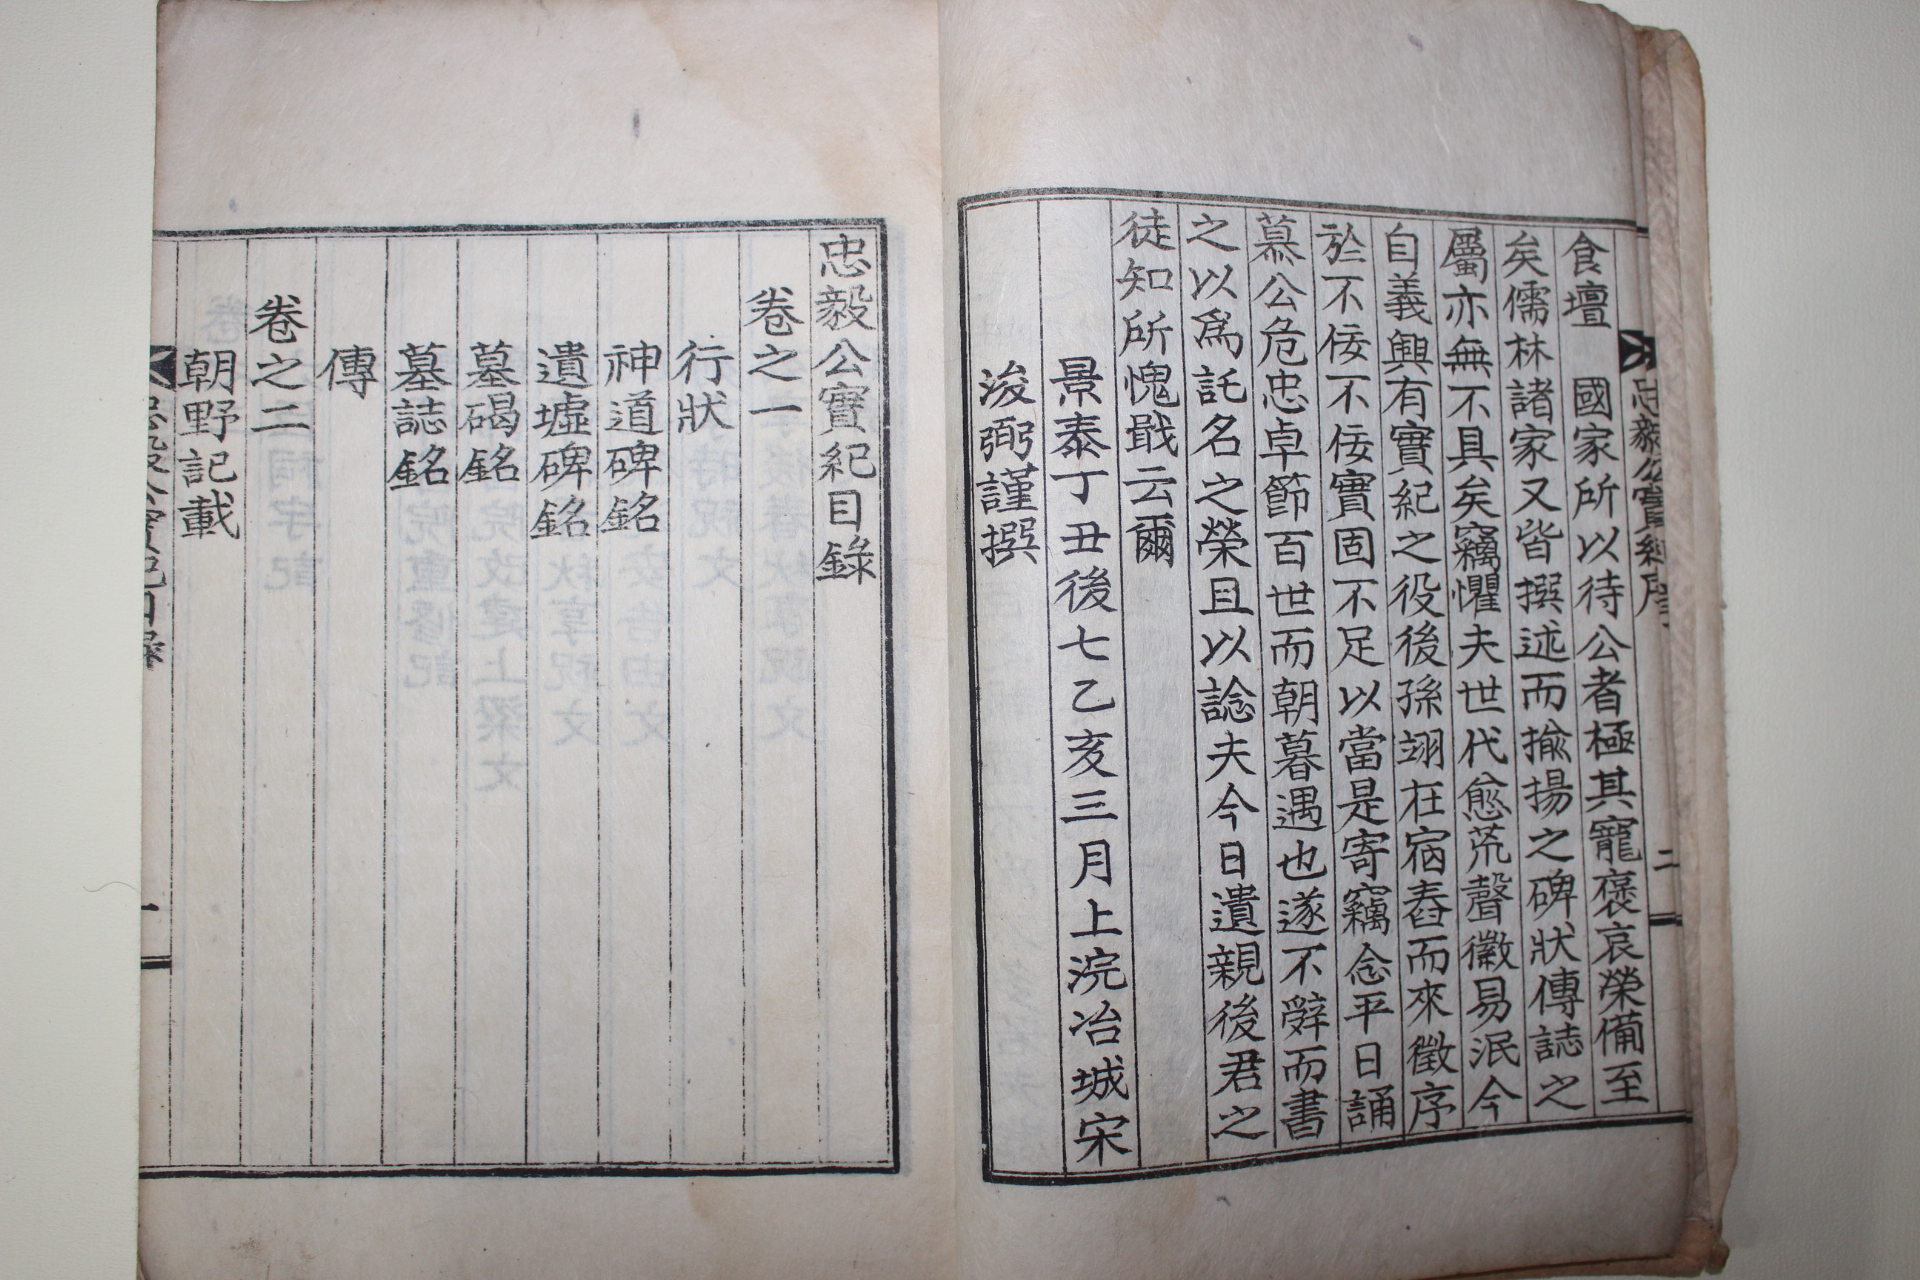 忠毅公實紀序
二
食壇 國家所以待公者極其寵褒哀榮備至
矣儒林諸家又皆撰述而揄揚之碑狀傳誌之
屬亦無不具矣竊懼夫世代愈荒聲徽易泯今
自義興有實紀之役後孫翊在宿舂而來徵序
於不佞不佞實固不足以當是寄竊念平日誦
慕公危忠卓節百世而朝暮遇也遂不辭而書
之以爲託名之榮且以諗夫今日遺親後君之
徒知所愧戢云爾
景泰丁丑後七乙亥三月上浣冶城宋
浚弼謹撰
忠毅公實紀目錄
卷之一
行狀
神道碑銘
遺墟碑銘
墓碣銘
墓誌銘
傳
卷之二
朝野記載
忠毅公實紀目錄
一